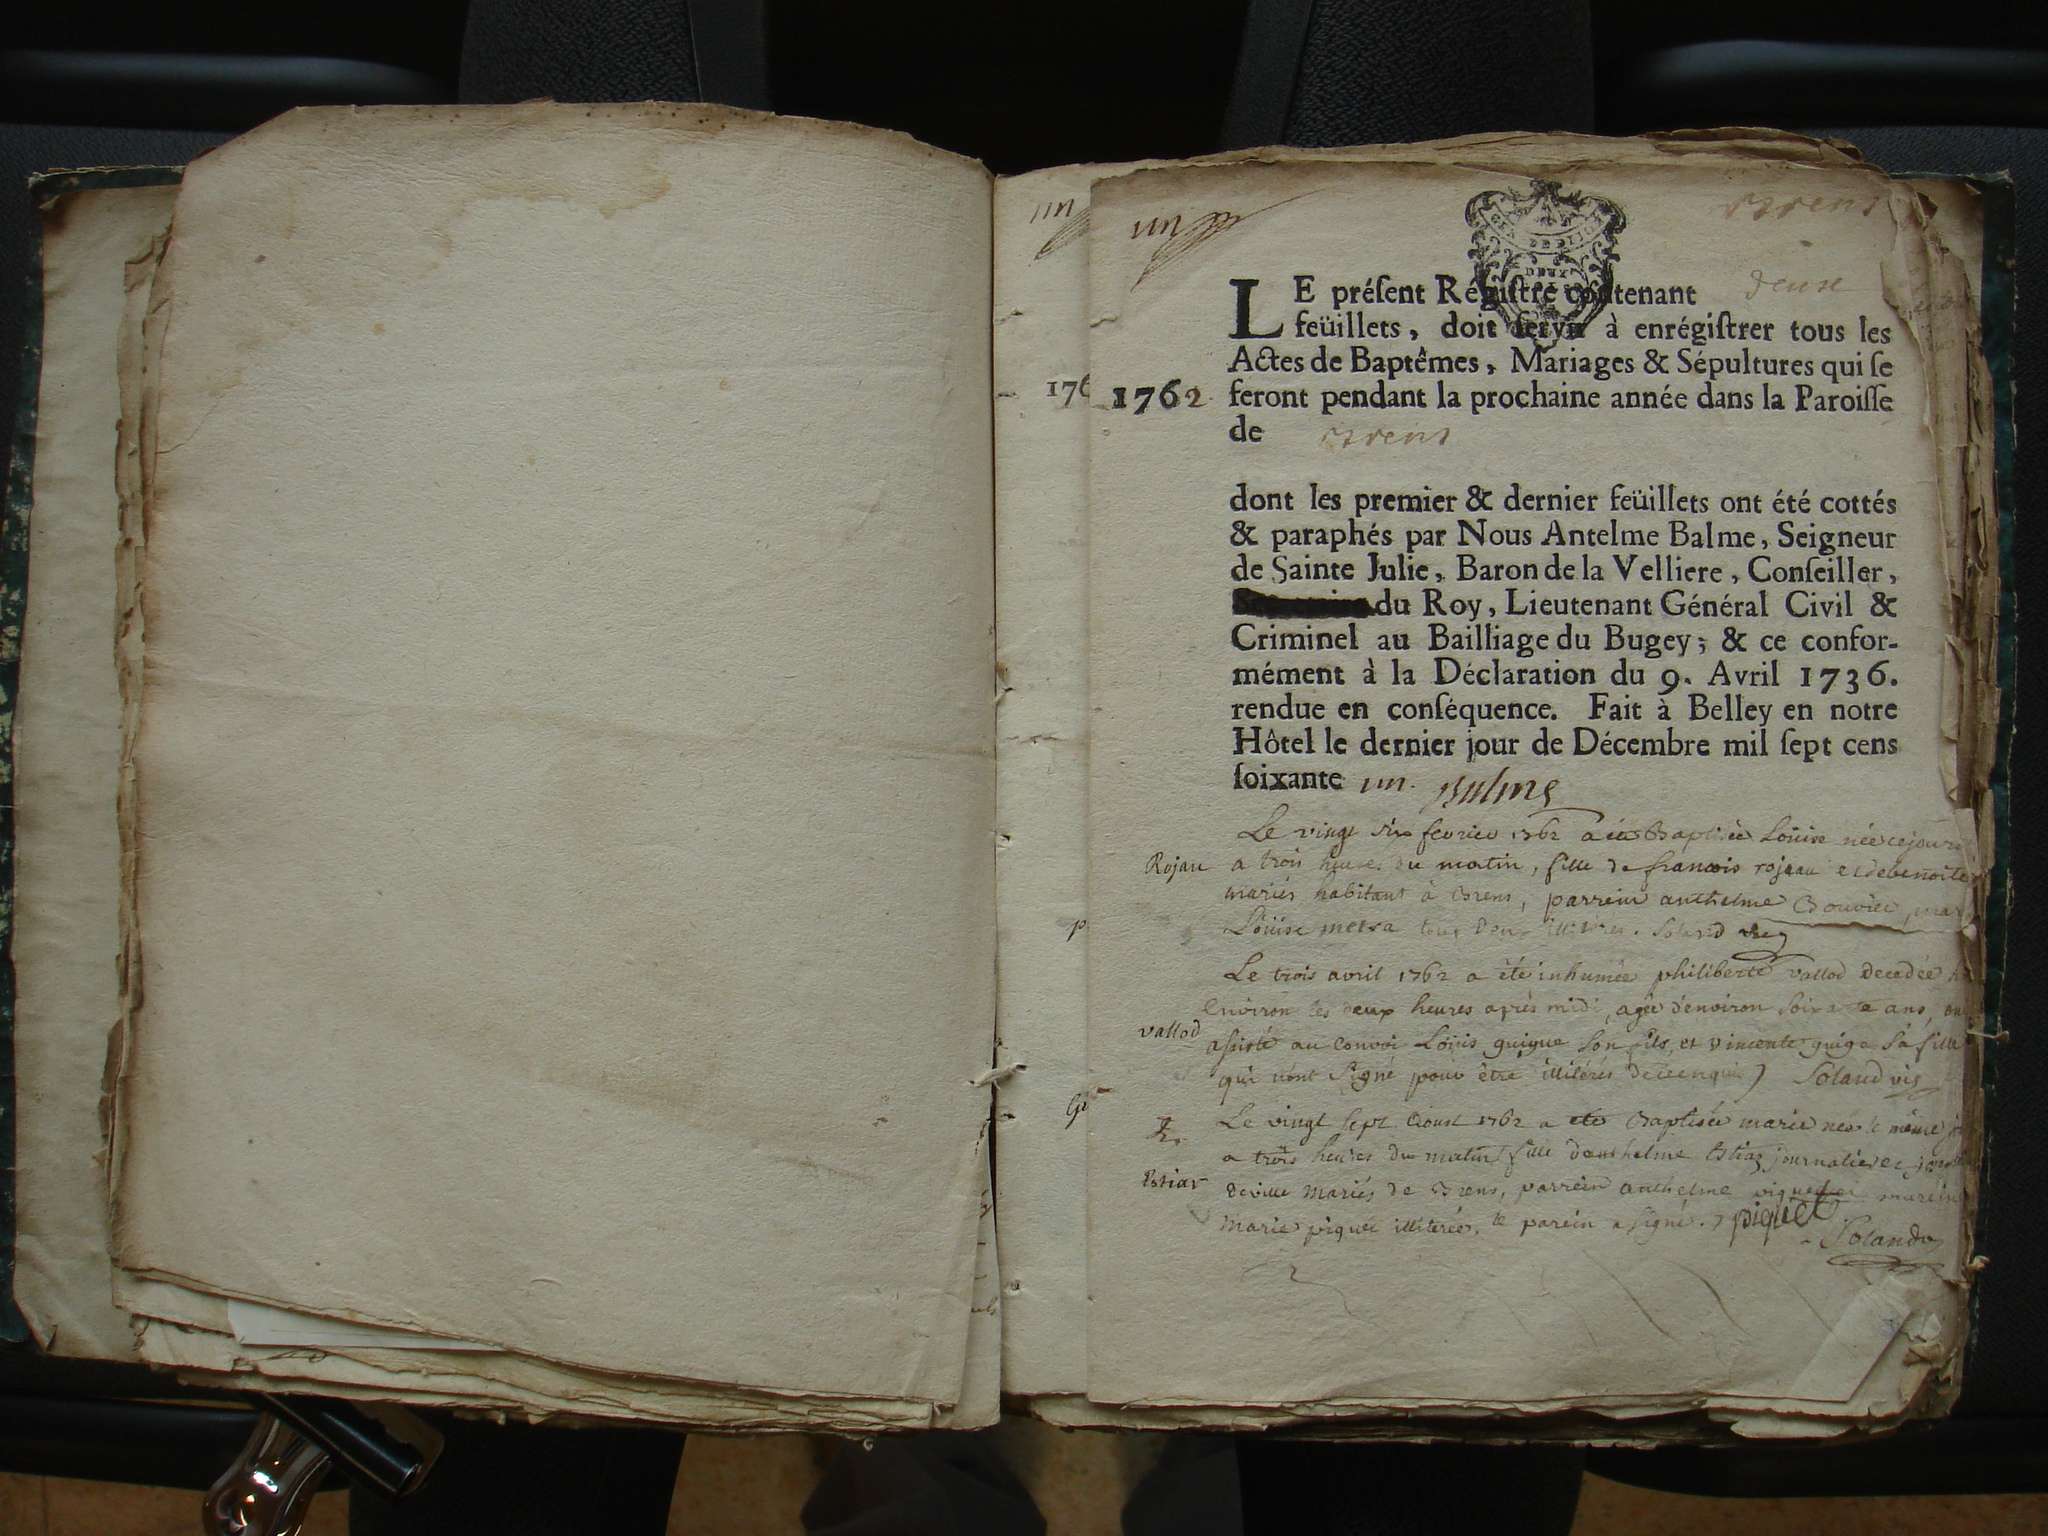 un
176
un
Brens
DEUX
LE préſent Régiſtre contenant deux
feüillets, doit ſervir à enrégiſtrer tous les
Actes de Baptêmes, Mariages & Sépultures qui ſe
1762 feront pendant la prochaine année dans la Paroiſſe
de Brens
dont les premier & dernier feüillets ont été cottés
& paraphés par Nous Antelme Balme, Seigneur
de Sainte Julie, Baron de la Velliere, Conſeiller,
du Roy, Lieutenant Général Civil &
Criminel au Bailliage du Bugey; & ce confor-
mément à la Déclaration du 9. Avril 1736.
rendue en conſéquence. Fait à Belley en notre
Hôtel le dernier jour de Décembre mil ſept cens
ſoixante un. Balme
Le vingt six fevrier 1762 a été Baptisée Loüise née ce jour
Rojau a trois heures du matin, fille de francois rojeau et de benoite
mariés habitant à Brens, parrein anthelme Bouvier, mar
Loüise metra tous deux illitérés. Soland vic
Le trois avril 1762 a été inhumée philiberte vallod decedée
Environ les deux heures après midi, agée d'environ soixante ans, on
vallod assisté au convoi Loüis guigue son fils, et vincente guige sa fille
qui n'ont signé pour être illitérés de ce enquis Soland vic
Le vingt sept Aoust 1762 a été Baptisée marie née le même
a trois heures du matin fille d'anthelme journalier et
deville mariés de Brens, parrein anthelme mareine
marie piquet illiterée, le parein a signé. piquet
Soland v